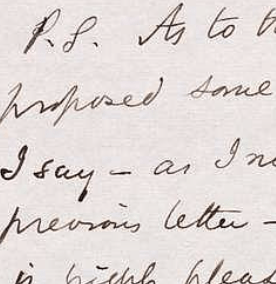 P.S. As to
proposed some
I say – as I
previous letter –
is high